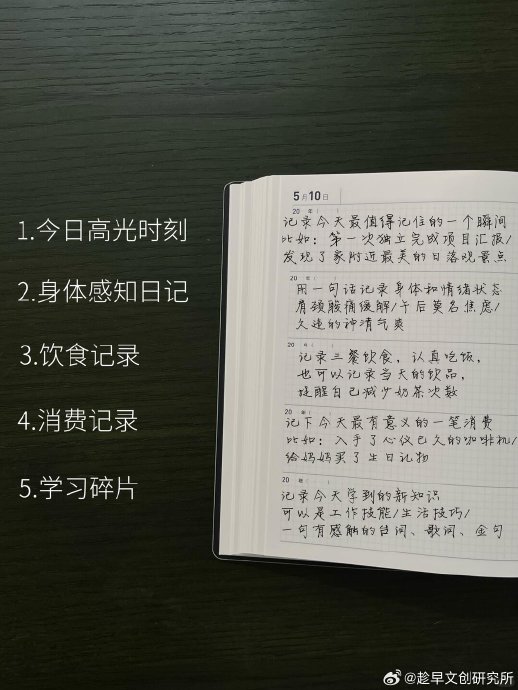 1.今日高光时刻
2.身体感知日记
3.饮食记录
4.消费记录
5.学习碎片
5月10日
20 年
记录今天最值得记住的一个瞬间
比如：第一次独立完成项目汇报/
发现了家附近最美的日落观景点
20 年
用一句话记录身体和情绪状态
肩颈酸痛缓解/午后莫名焦虑/
久违的神清气爽
20 年
记录三餐饮食，认真吃饭，
也可以记录当天的饮品，
提醒自己减少奶茶次数
20 年
记下今天最有意义的一笔消费
比如：入手了心仪已久的咖啡机/
给妈妈买了生日礼物
20 年
记录今天学到的新知识
可以是工作技能/生活技巧/
一句有感触的台词、歌词、金句
@趁早文创研究所